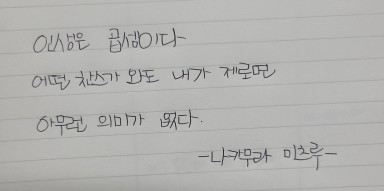 인생은 곱셈이다
어떤 찬스가 와도 내가 제로면
아무런 의미가 없다.
-나카무라 미츠루-